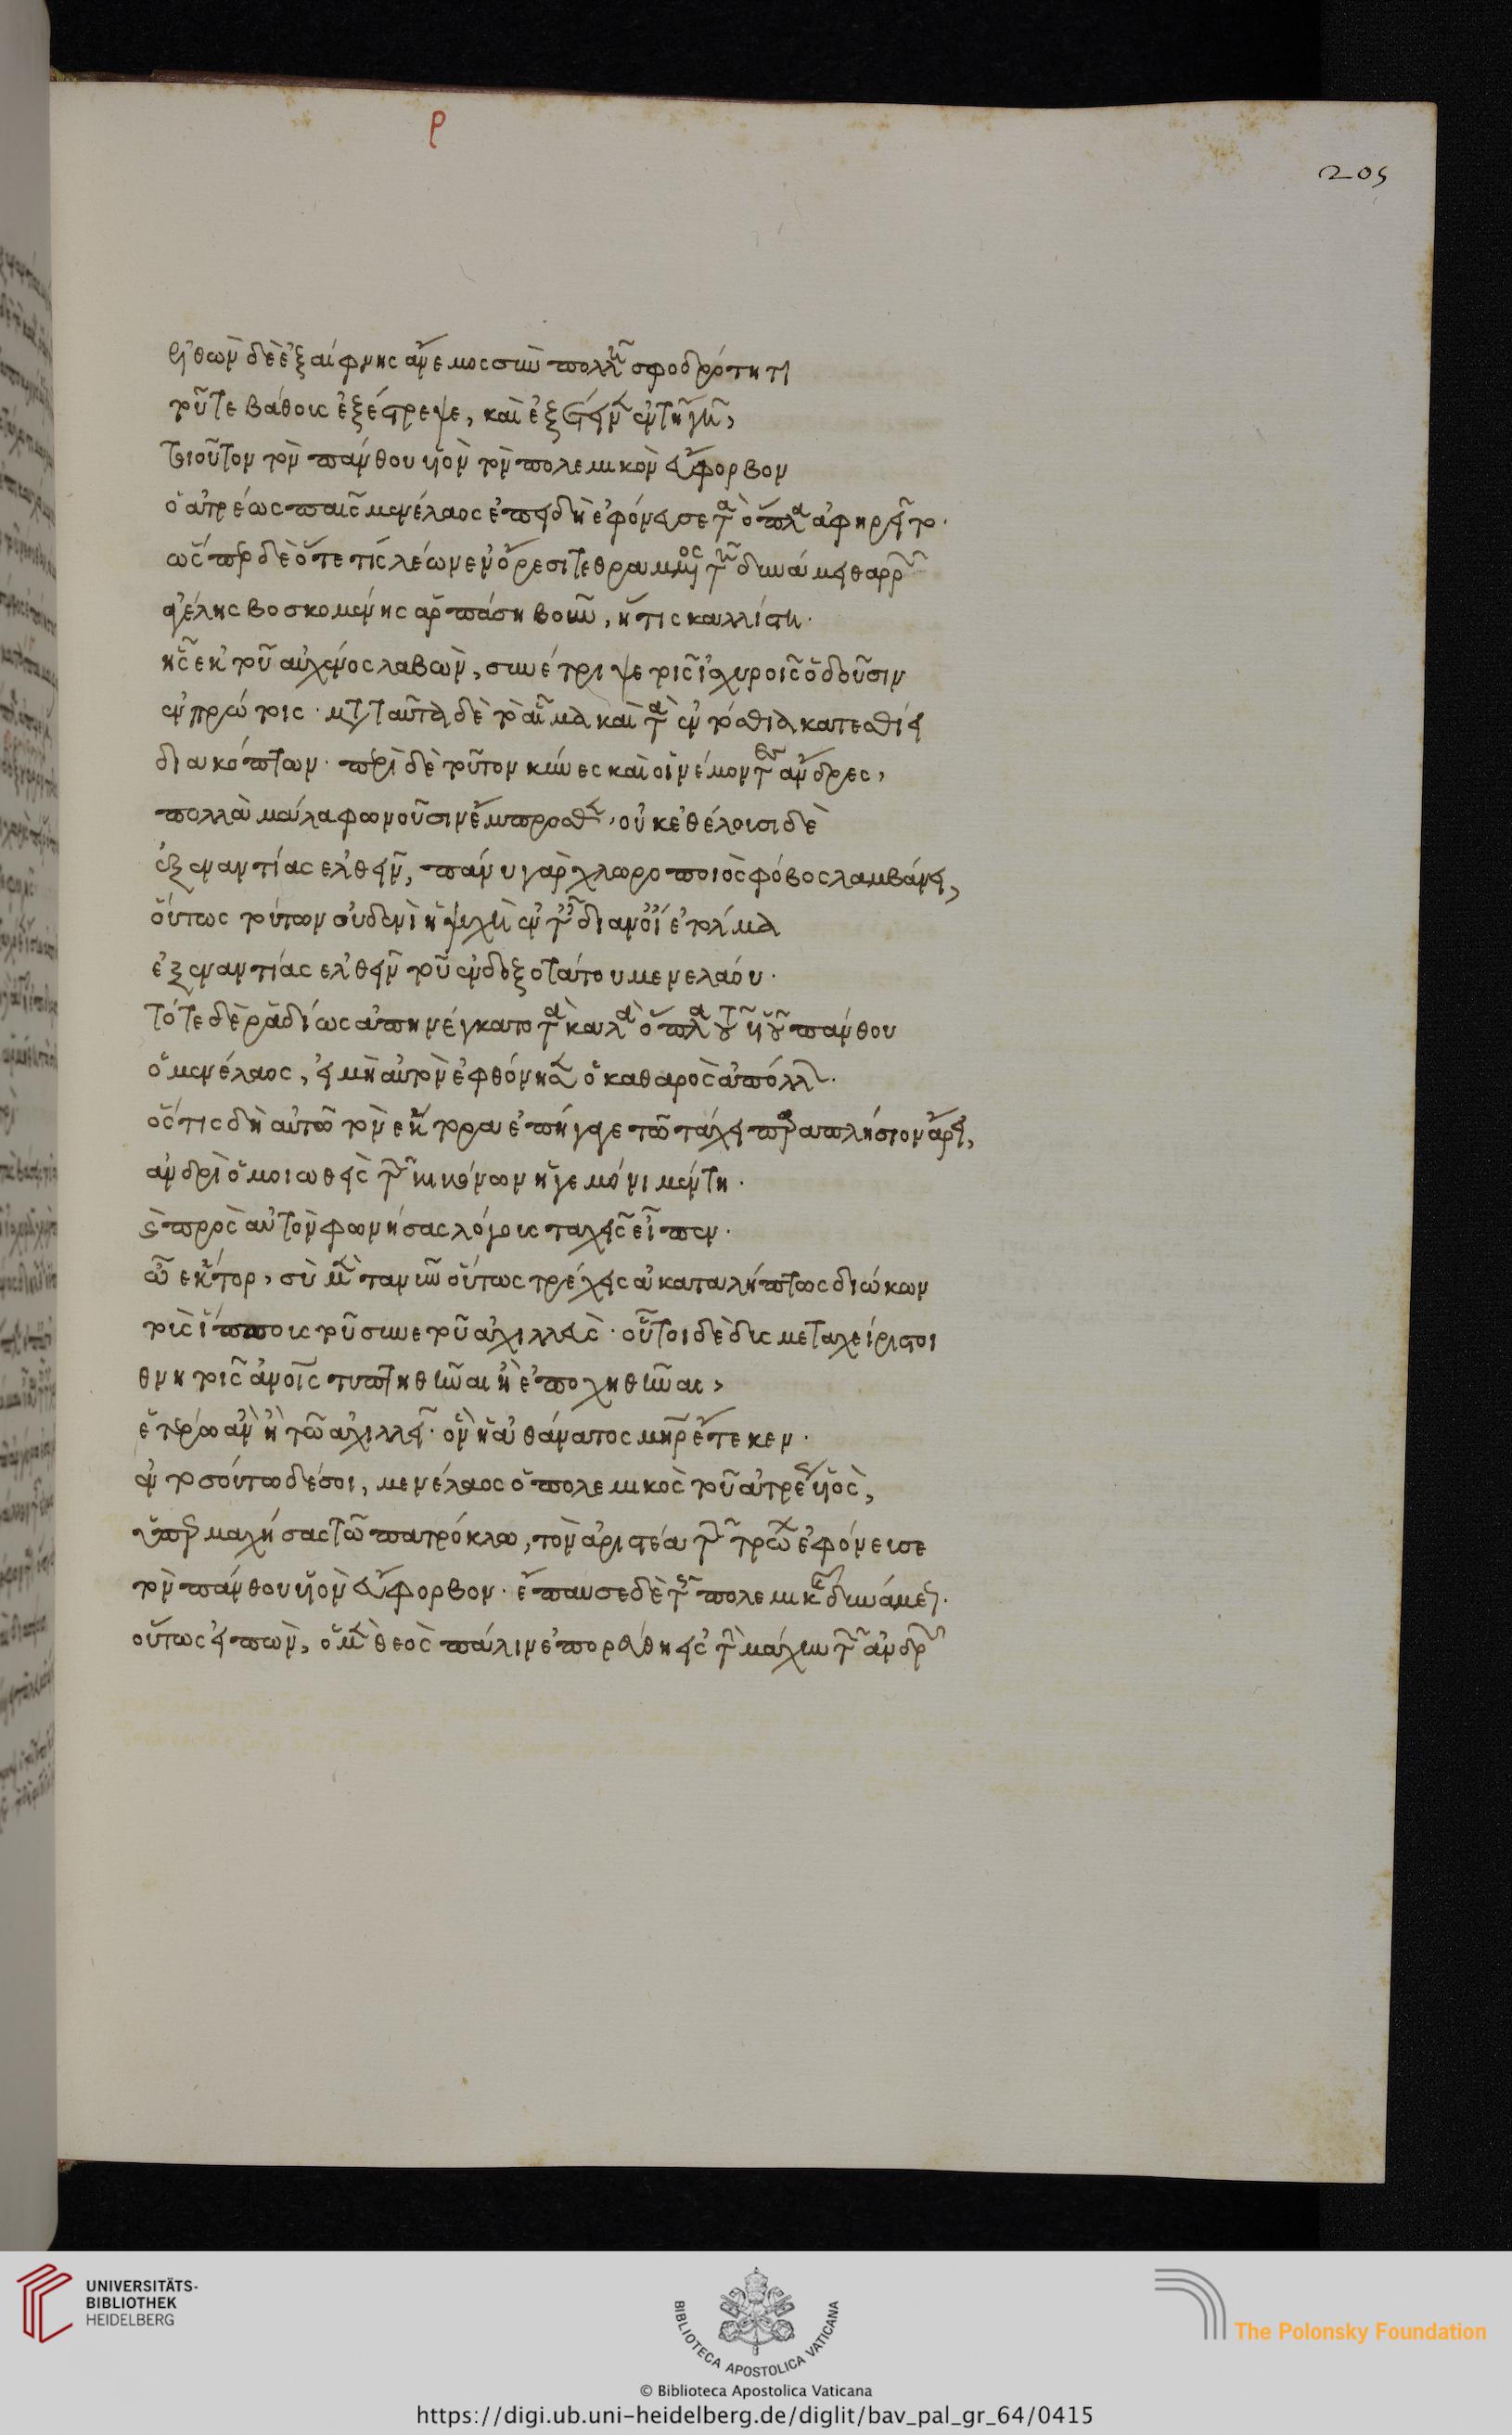 ρ
205
ἐλθὼν δὲ ἐξαίφνης ἄνεμος σὺν πολλῇ σφοδρότητι
τοῦ τε βάθους ἐξέστρεψε, καὶ ἐξέτεινεν ἐν τῇ γῇ,
τοιοῦτον τὸν πάνθου υἱὸν τὸν πολεμικὸν εὔφορβον
ὁ ἀτρέως παῖς μενέλαος ἐπειδὴ ἐφόνευσε τὰ ὅπλα ἀφῃρεῖτο.
ὥσπερ δὲ ὅτε τίς λέων ἐν ὄρεσι τεθραμμένος τῇ δυνάμει θαρρῶν
ἀγέλης βοσκομένης ἁρπάσῃ βοῦν, ἥτις καλλίστη.
ἧς ἐκ τοῦ αὐχένος λαβὼν, συνέτριψε τοῖς ἰσχυροῖς ὀδοῦσιν
ἐν πρώτοις. μετὰ ταῦτα δὲ τὸ αἷμα καὶ τὰ ἐντόσθια κατεσθίει
διακόπτων. περὶ δὲ τοῦτον κύνες καὶ οἱ νέμοντες ἄνδρες,
πολλὰ μάλα φωνοῦσιν ἔμπροσθεν, οὐκ ἐθέλουσι δὲ
ἐξεναντίας ἐλθεῖν, πάνυ γὰρ χλωροποιὸς φόβος λαμβάνει,
οὕτως τούτων οὐδενὶ ἡ ψυχὴ ἐν τῇ διανοίᾳ ἐτόλμα
ἐξεναντίας ἐλθεῖν τοῦ ἐνδοξοτάτου μενελάου.
τότε δὲ ῥᾳδίως ἀπηνέγκατο τὰ καλὰ ὅπλα τοῦ υἱοῦ πάνθου
ὁ μενέλαος, εἰ μὴ αὐτὸν ἐφθόνησεν ὁ καθαρὸς ἀπόλλων.
ὅστις δὴ αὐτῷ τὸν ἕκτορα ἐπήγειρε τῷ τάχει παραπλήσιον ἄρει,
ἀνδρὶ ὁμοιωθεὶς τῶν κικόνων ἡγεμόνι μέντῃ.
καὶ πρὸς αὐτὸν φωνήσας λόγοις ταχεῖς εἶπεν.
ὦ ἕκτορ, σὺ μὲν τανῦν οὕτως τρέχεις ἀκαταλήπτως διώκων
τοὺς ἵππους τοῦ συνετοῦ ἀχιλλέως. οὗτοι δὲ δυσμεταχείριστοι
θνητοῖς ἀνοῖς τυπτηθῆναι ἢ ἐποχηθῆναι,
ἑτέρῳ ἂν ἢ τῷ ἀχιλλεῖ. ὃν ἡ ἀθάνατος μήτηρ ἔτεκεν.
ἐν τοσούτῳ δέ σοι, μενέλαος ὁ πολεμικὸς τοῦ ἀτρέως υἱὸς,
ὑπερμαχήσας τῷ πατρόκλῳ, τὸν ἀριστέα τῶν τρώων ἐφόνευσε
τὸν πάνθου υἱὸν εὔφορβον. ἔπαυσε δὲ τῆς πολεμικῆς δυνάμεως.
οὕτως εἰπὼν, ὁ μὲν θεὸς πάλιν ἐπορεύθη εἰς τὴν μάχην τῶν ἀνδρῶν
UNIVERSITÄTS-
BIBLIOTHEK
HEIDELBERG
BIBLIOTECA APOSTOLICA VATICANA
The Polonsky Foundation
© Biblioteca Apostolica Vaticana
https://digi.ub.uni-heidelberg.de/diglit/bav_pal_gr_64/0415